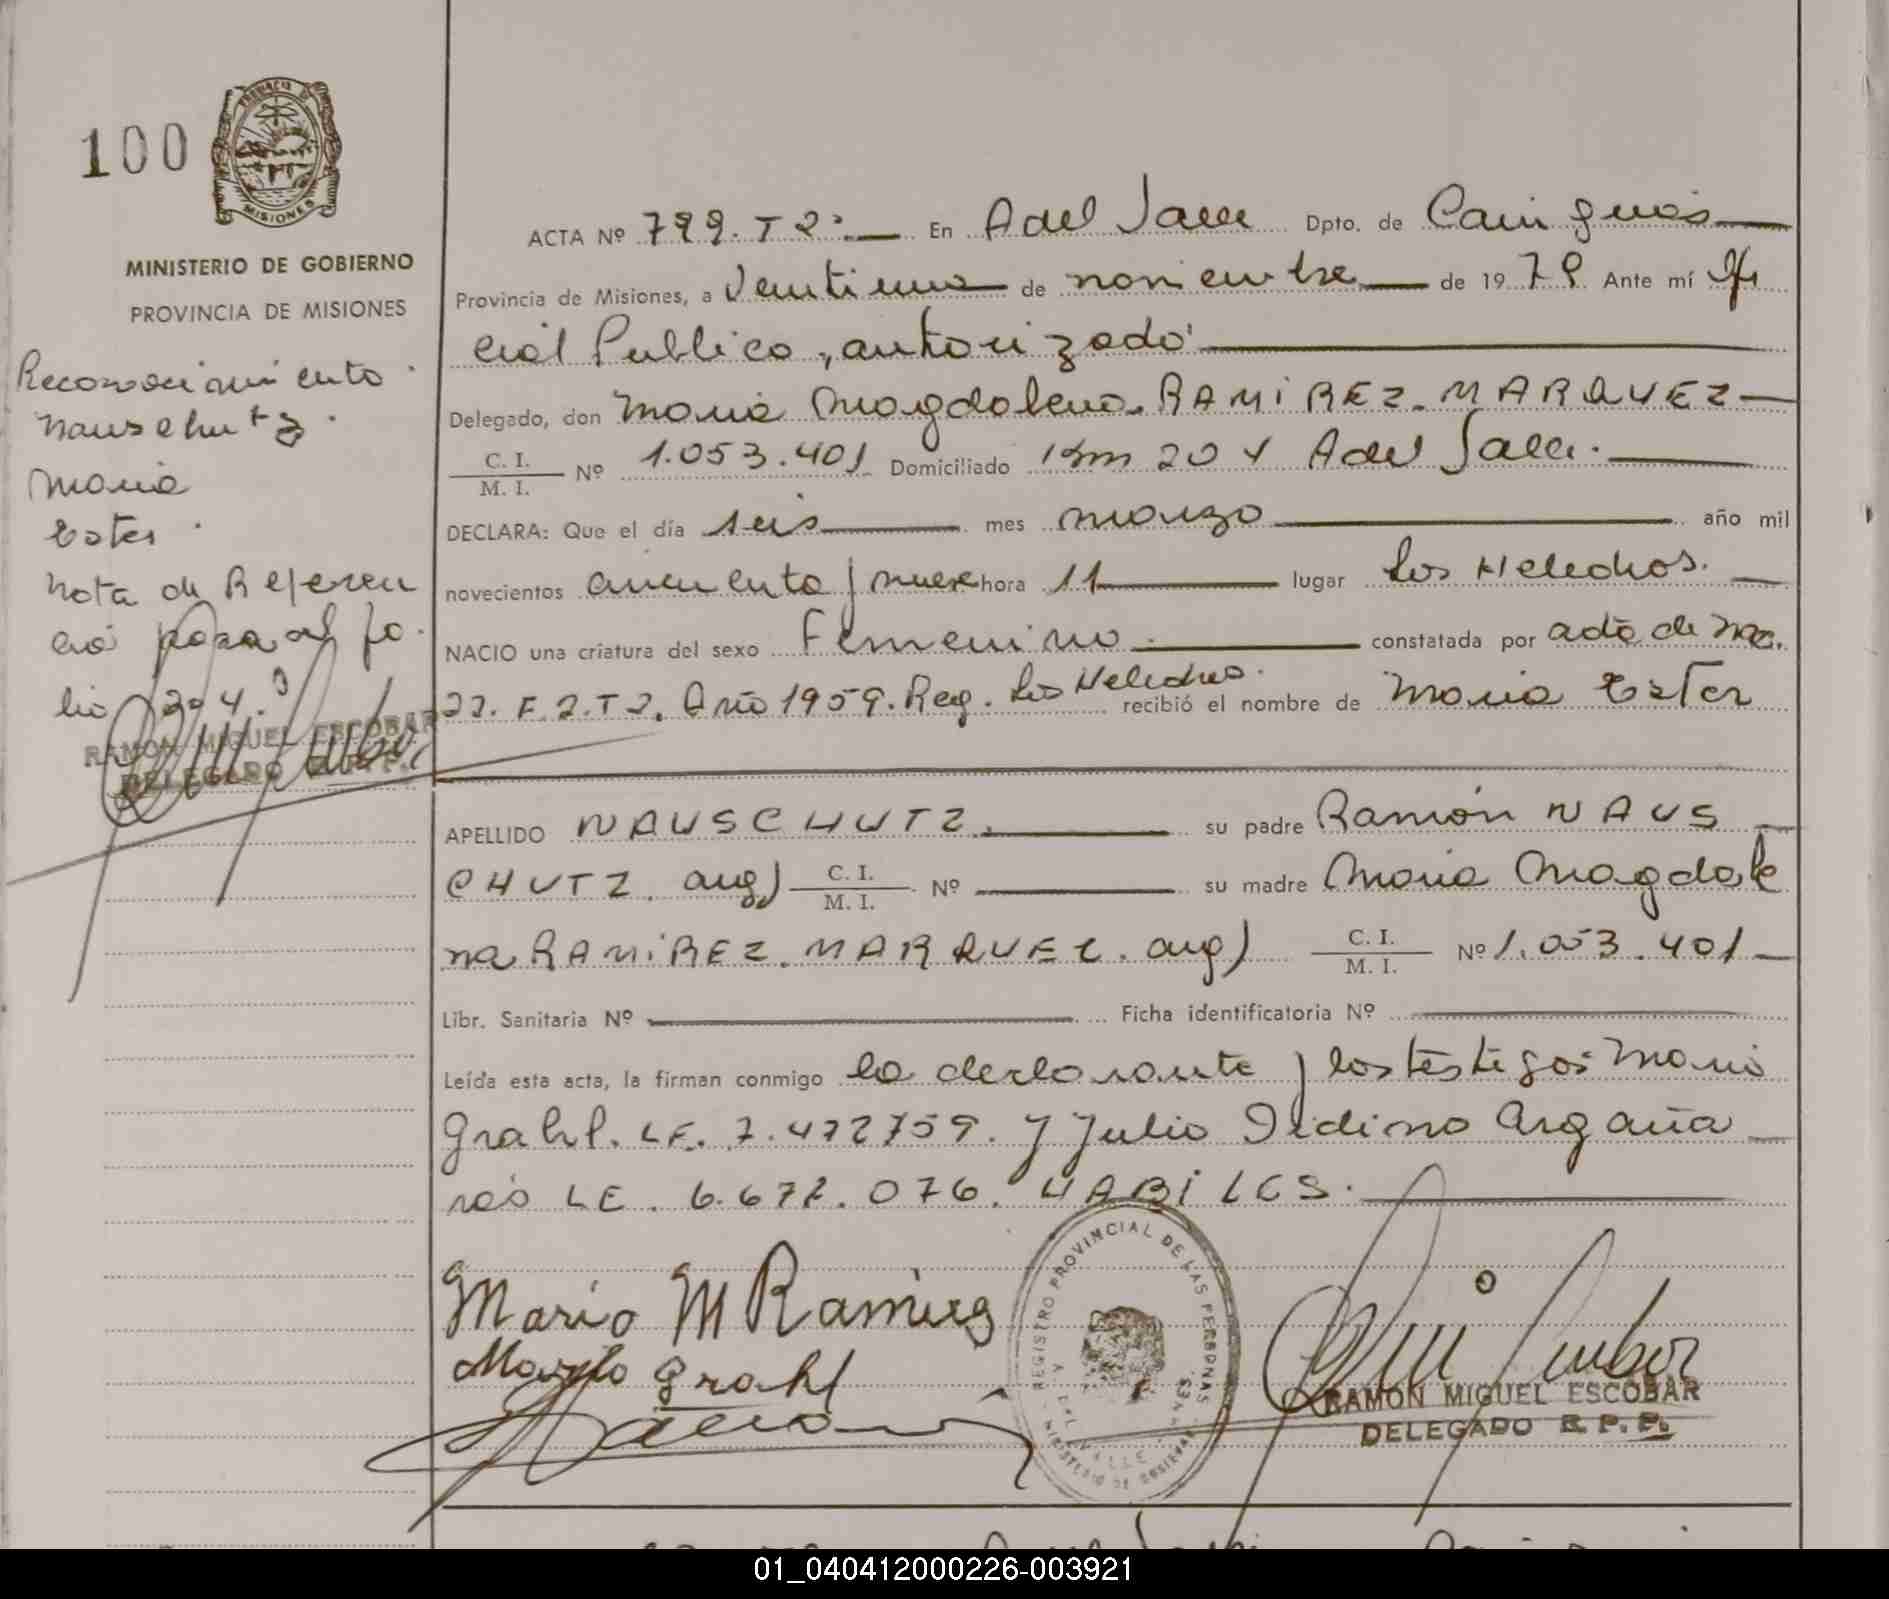 100
PROVINCIA DE
MISIONES
MINISTERIO DE GOBIERNO
PROVINCIA DE MISIONES
Reconocimiento
Nauschutz
Maria
Ester
Nota de Referen
cia pasa al fo
lio 204.
RAMON MIGUEL ESCOBAR
DELEGADO R.P.P.
ACTA Nº 799. T 2º En A del Valle Dpto. de Cainguas
Provincia de Misiones, a Veintiuno de noviembre de 1979 Ante mí Ofi
cial Publico, autorizado
Delegado, don Maria Magdalena RAMIREZ MARQUEZ
C. I. / M. I. Nº 1.053.401 Domiciliado Km 204 A del Valle.
DECLARA: Que el día seis mes marzo año mil
novecientos cincuenta y nueve hora 11 lugar Los Helechos.
NACIO una criatura del sexo Femenino. constatada por acta de nac.
22. F. 2. T 2. Año 1959. Reg. Los Helechos. recibió el nombre de Maria Ester
APELLIDO NAUSCHUTZ. su padre Ramón NAUS
CHUTZ. arg) C. I. / M. I. Nº su madre Maria Magdale
na RAMIREZ. MARQUEZ. arg) C. I. / M. I. Nº 1.053.401
Libr. Sanitaria Nº Ficha identificatoria Nº
Leída esta acta, la firman conmigo la declarante y los testigos Mario
Grahl. LE. 7.472759. y Julio Argaña
ras LE. 6.672.076. HABILES.
Mario M Ramires
Mario Grahl
REGISTRO PROVINCIAL DE LAS PERSONAS
MINISTERIO DE GOBIERNO
A DEL VALLE
RAMON MIGUEL ESCOBAR
DELEGADO R.P.P.
01_040412000226-003921